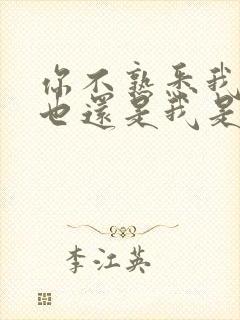 你不熟悉我
也還是我是
李江英